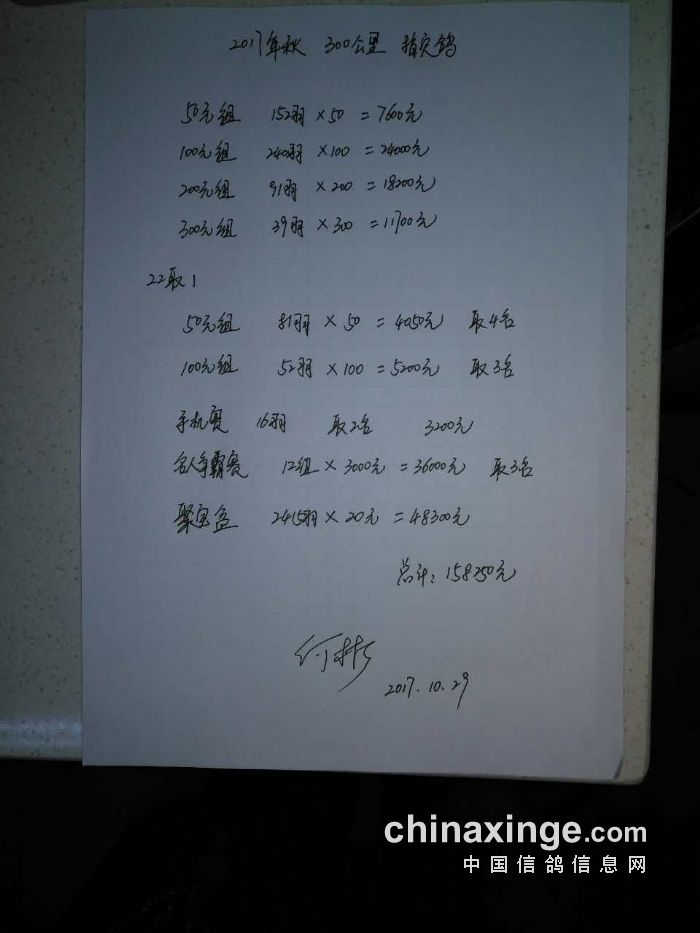 2017年秋 300公里 指定鸽
50元组 152羽 × 50 = 7600元
100元组 240羽 × 100 = 24000元
200元组 91羽 × 200 = 18200元
300元组 39羽 × 300 = 11700元
22取1
50元组 81羽 × 50 = 4050元 取4名
100元组 52羽 × 100 = 5200元 取3名
手机赛 16羽 取2名 3200元
名人争霸赛 12组 × 3000元 = 36000元 取3名
聚宝盆 2415羽 × 20元 = 48300元
总计: 158250元
何彬
2017.10.29
chinaxinge.com
中国信鸽信息网